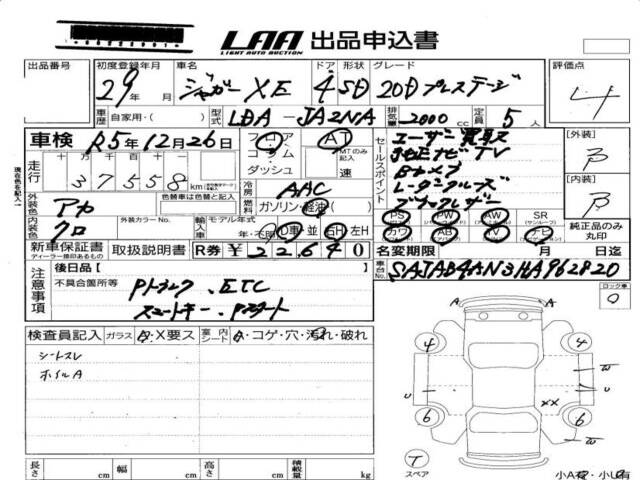 LAA 出品申込書
LIGHT AUTO AUCTION
出品番号 初度登録年月 車名 ドア 形状 グレード 評価点
29年 月 ジャガーXE 4 SD 20Dプレステージ 4
車歴 自家用・( ) 型式 LDA-JA2NA 排気量 2000 cc 定員 5人
車検 R5年12月26日 フロア コラム ダッシュ AT MTのみ記入 速
現在色を記入
走行 十万 万 千 百 十 一
37558 km
セールスポイント ユーザー買取ス
純正ナビTV
Bカメラ
レーダークルーズ
ブラックレザー
[外装] B
[内装] B
冷房 AAC
外装色 アカ 色替車は色替と記入 外装カラーNo. 燃料 ガソリン・軽油( )
内装色 クロ 輸入車 モデル年式 年・不明 D車・並 RH・左H
PS PW AW SR
(パワステ) (パワーウィンドウ) (サンルーフ)
カワ AB TV ナビ
純正品のみ丸印
新車保証書 ディーラー捺印あるもの 取扱説明書 R券 ¥22640 名変期限 月 日迄
車台No. SAJAB4AN3HA962820
注意事項 後日品[ ]
不具合箇所等 Pトランク、ETC
スマートキー、Pスタート
ロック車 0
検査員記入 ガラス A・X要ス 室内シート A・コゲ・穴・汚れ・破れ
シートスレ
ホイルA
A A
4 4
W
U U
XX W
6 6
T
スペア
小A有・小U有
長さ cm 幅 cm 高さ cm 積載量 kg